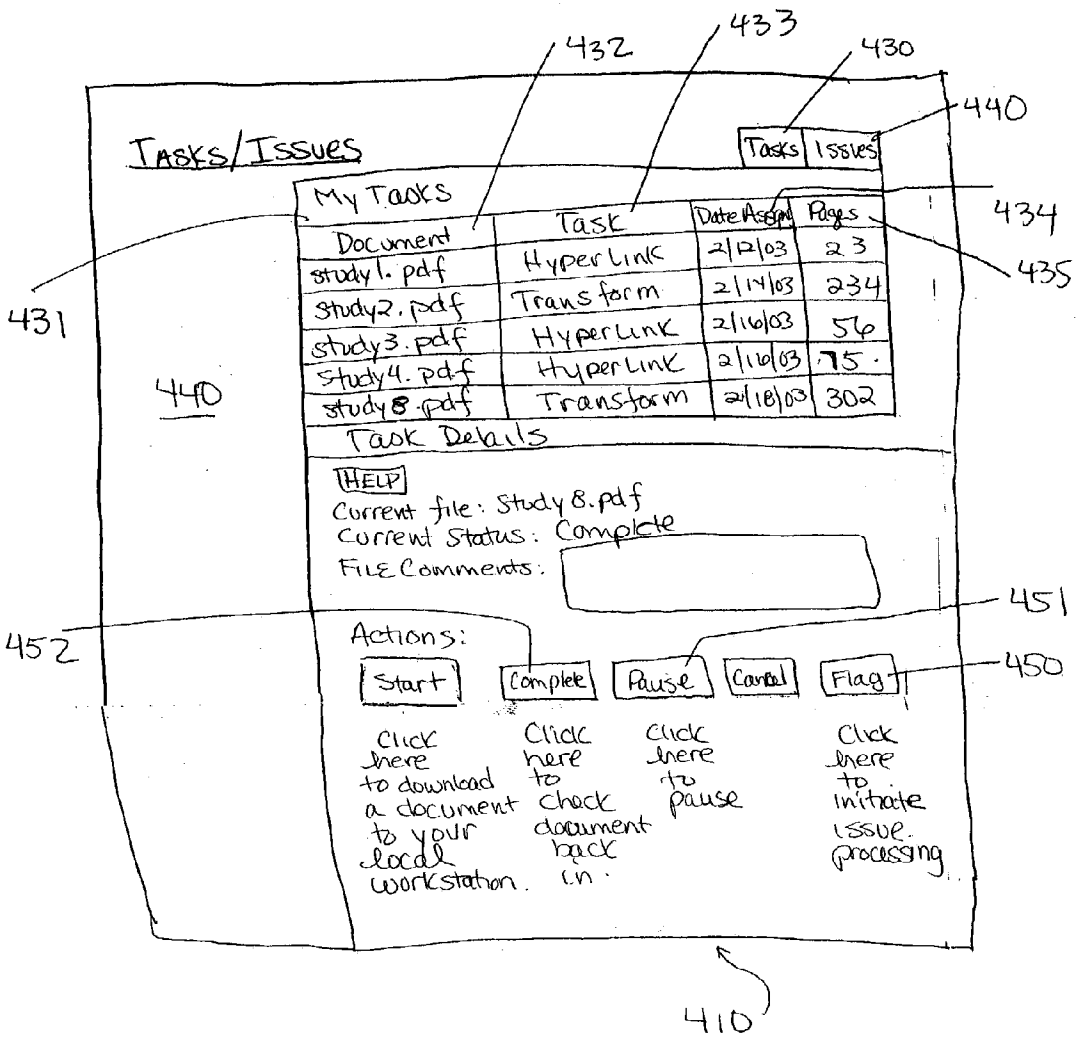 432
433
430
440
TASKS/ISSUES
Tasks Issues
My Tasks
434
Document Task Date Assgn Pages
study1.pdf HyperLink 2/12/03 23
435
study2.pdf Transform 2/14/03 234
431
study3.pdf HyperLink 2/16/03 56
study4.pdf HyperLink 2/16/03 75
440
study8.pdf Transform 2/18/03 302
Task Details
HELP
Current file: Study8.pdf
Current Status: Complete
FILE Comments:
451
452
Actions:
450
Start Complete Pause Cancel Flag
Click here to download a document to your local workstation.
Click here to check document back in.
Click here to pause
Click here to initiate issue processing
410